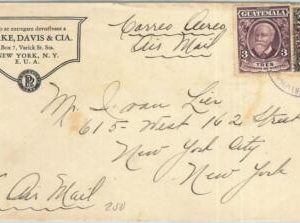 se entregare devuélvase a
RKE, DAVIS & CIA.
Box 7, Varick St. Sta.
NEW YORK, N. Y.
E. U. A.
Correo Aereo
Air Mail
GUATEMALA
3 3
1929
Mr J. van Lier
615- West 162 Street
New York City
New York
Air Mail